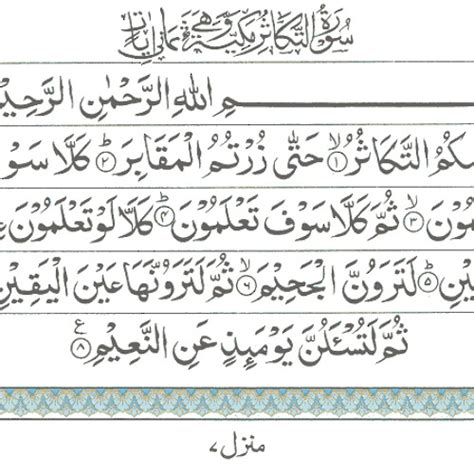 سُوْرَةُ التَّكَاثُرِ مَكِّيَّةٌ وَّهِيَ ثَمَانِيْ اٰيَاتٍ
مِ اللهِ الرَّحْمٰنِ الرَّحِيْ
كُمُ التَّكَاثُرُ ۙ۱ حَتّٰى زُرْتُمُ الْمَقَابِرَ ؕ۲ كَلَّا سَوْ
مُوْنَ ۙ۳ ثُمَّ كَلَّا سَوْفَ تَعْلَمُوْنَ ؕ۴ كَلَّا لَوْ تَعْلَمُوْنَ عِ
يْنِ ؕ۵ لَتَرَوُنَّ الْجَحِيْمَ ۙ۶ ثُمَّ لَتَرَوُنَّهَا عَيْنَ الْيَقِيْنِ
ثُمَّ لَتُسْـَٔلُنَّ يَوْمَىِٕذٍ عَنِ النَّعِيْمِ ۸ ع
منزل ۷